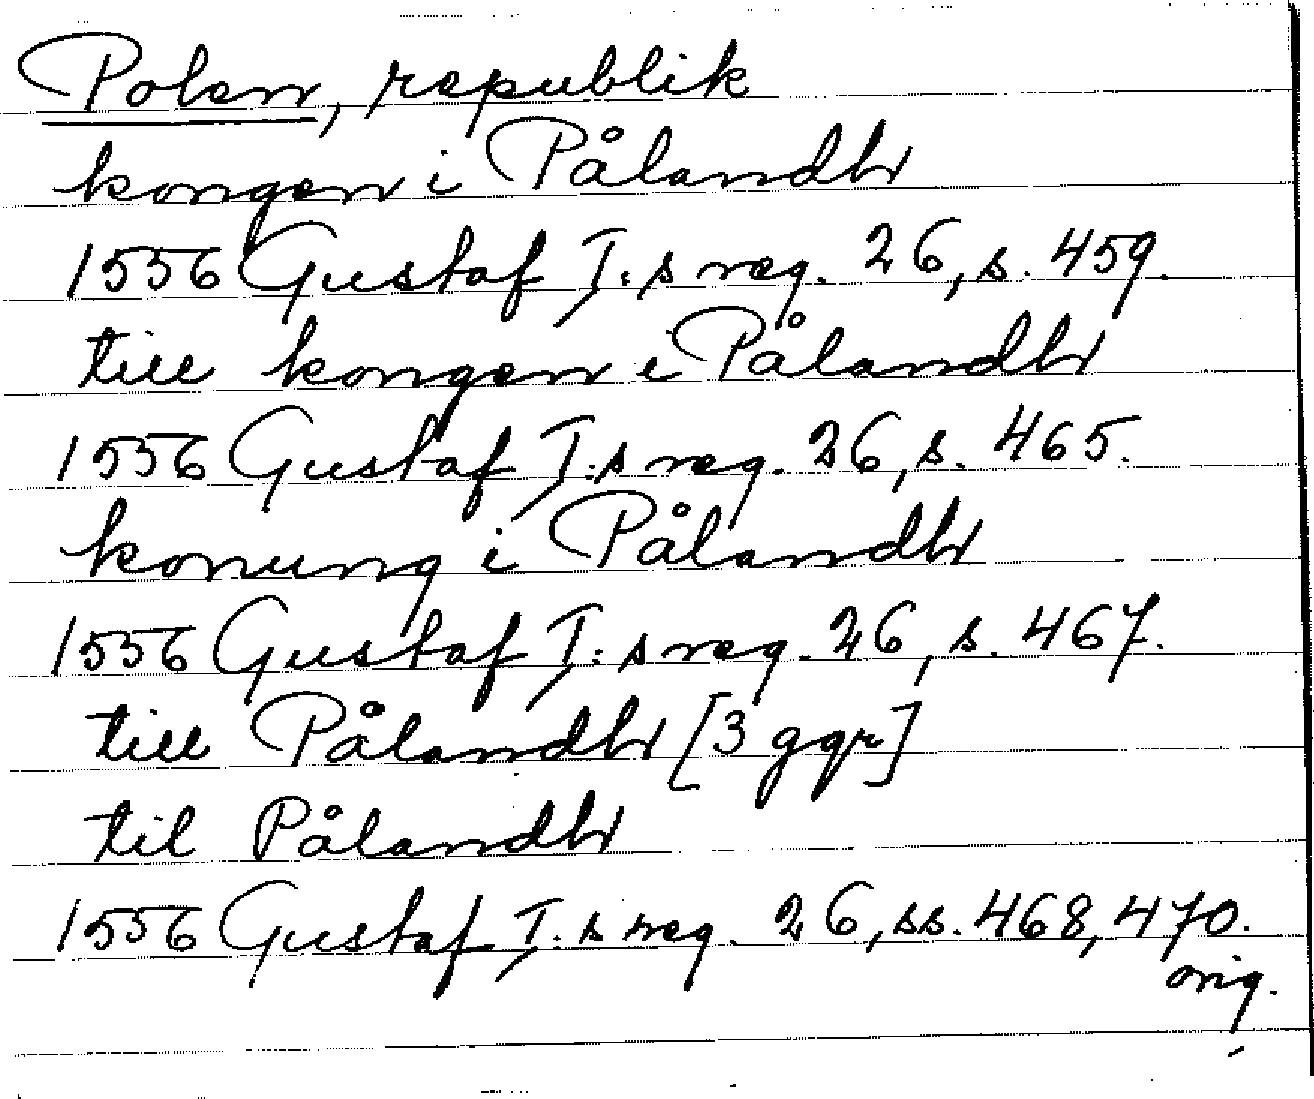 Polen, republik
kongen i Pålandh
1556 Gustaf I:s reg. 26, s. 459.
till kongen i Pålandh
1556 Gustaf I:s reg. 26, s. 465.
konung i Pålandh
1556 Gustaf I:s reg. 26, s. 467.
till Pålandh [3 ggr]
til Pålandh
1556 Gustaf I:s reg. 26, ss. 468, 470.
orig.